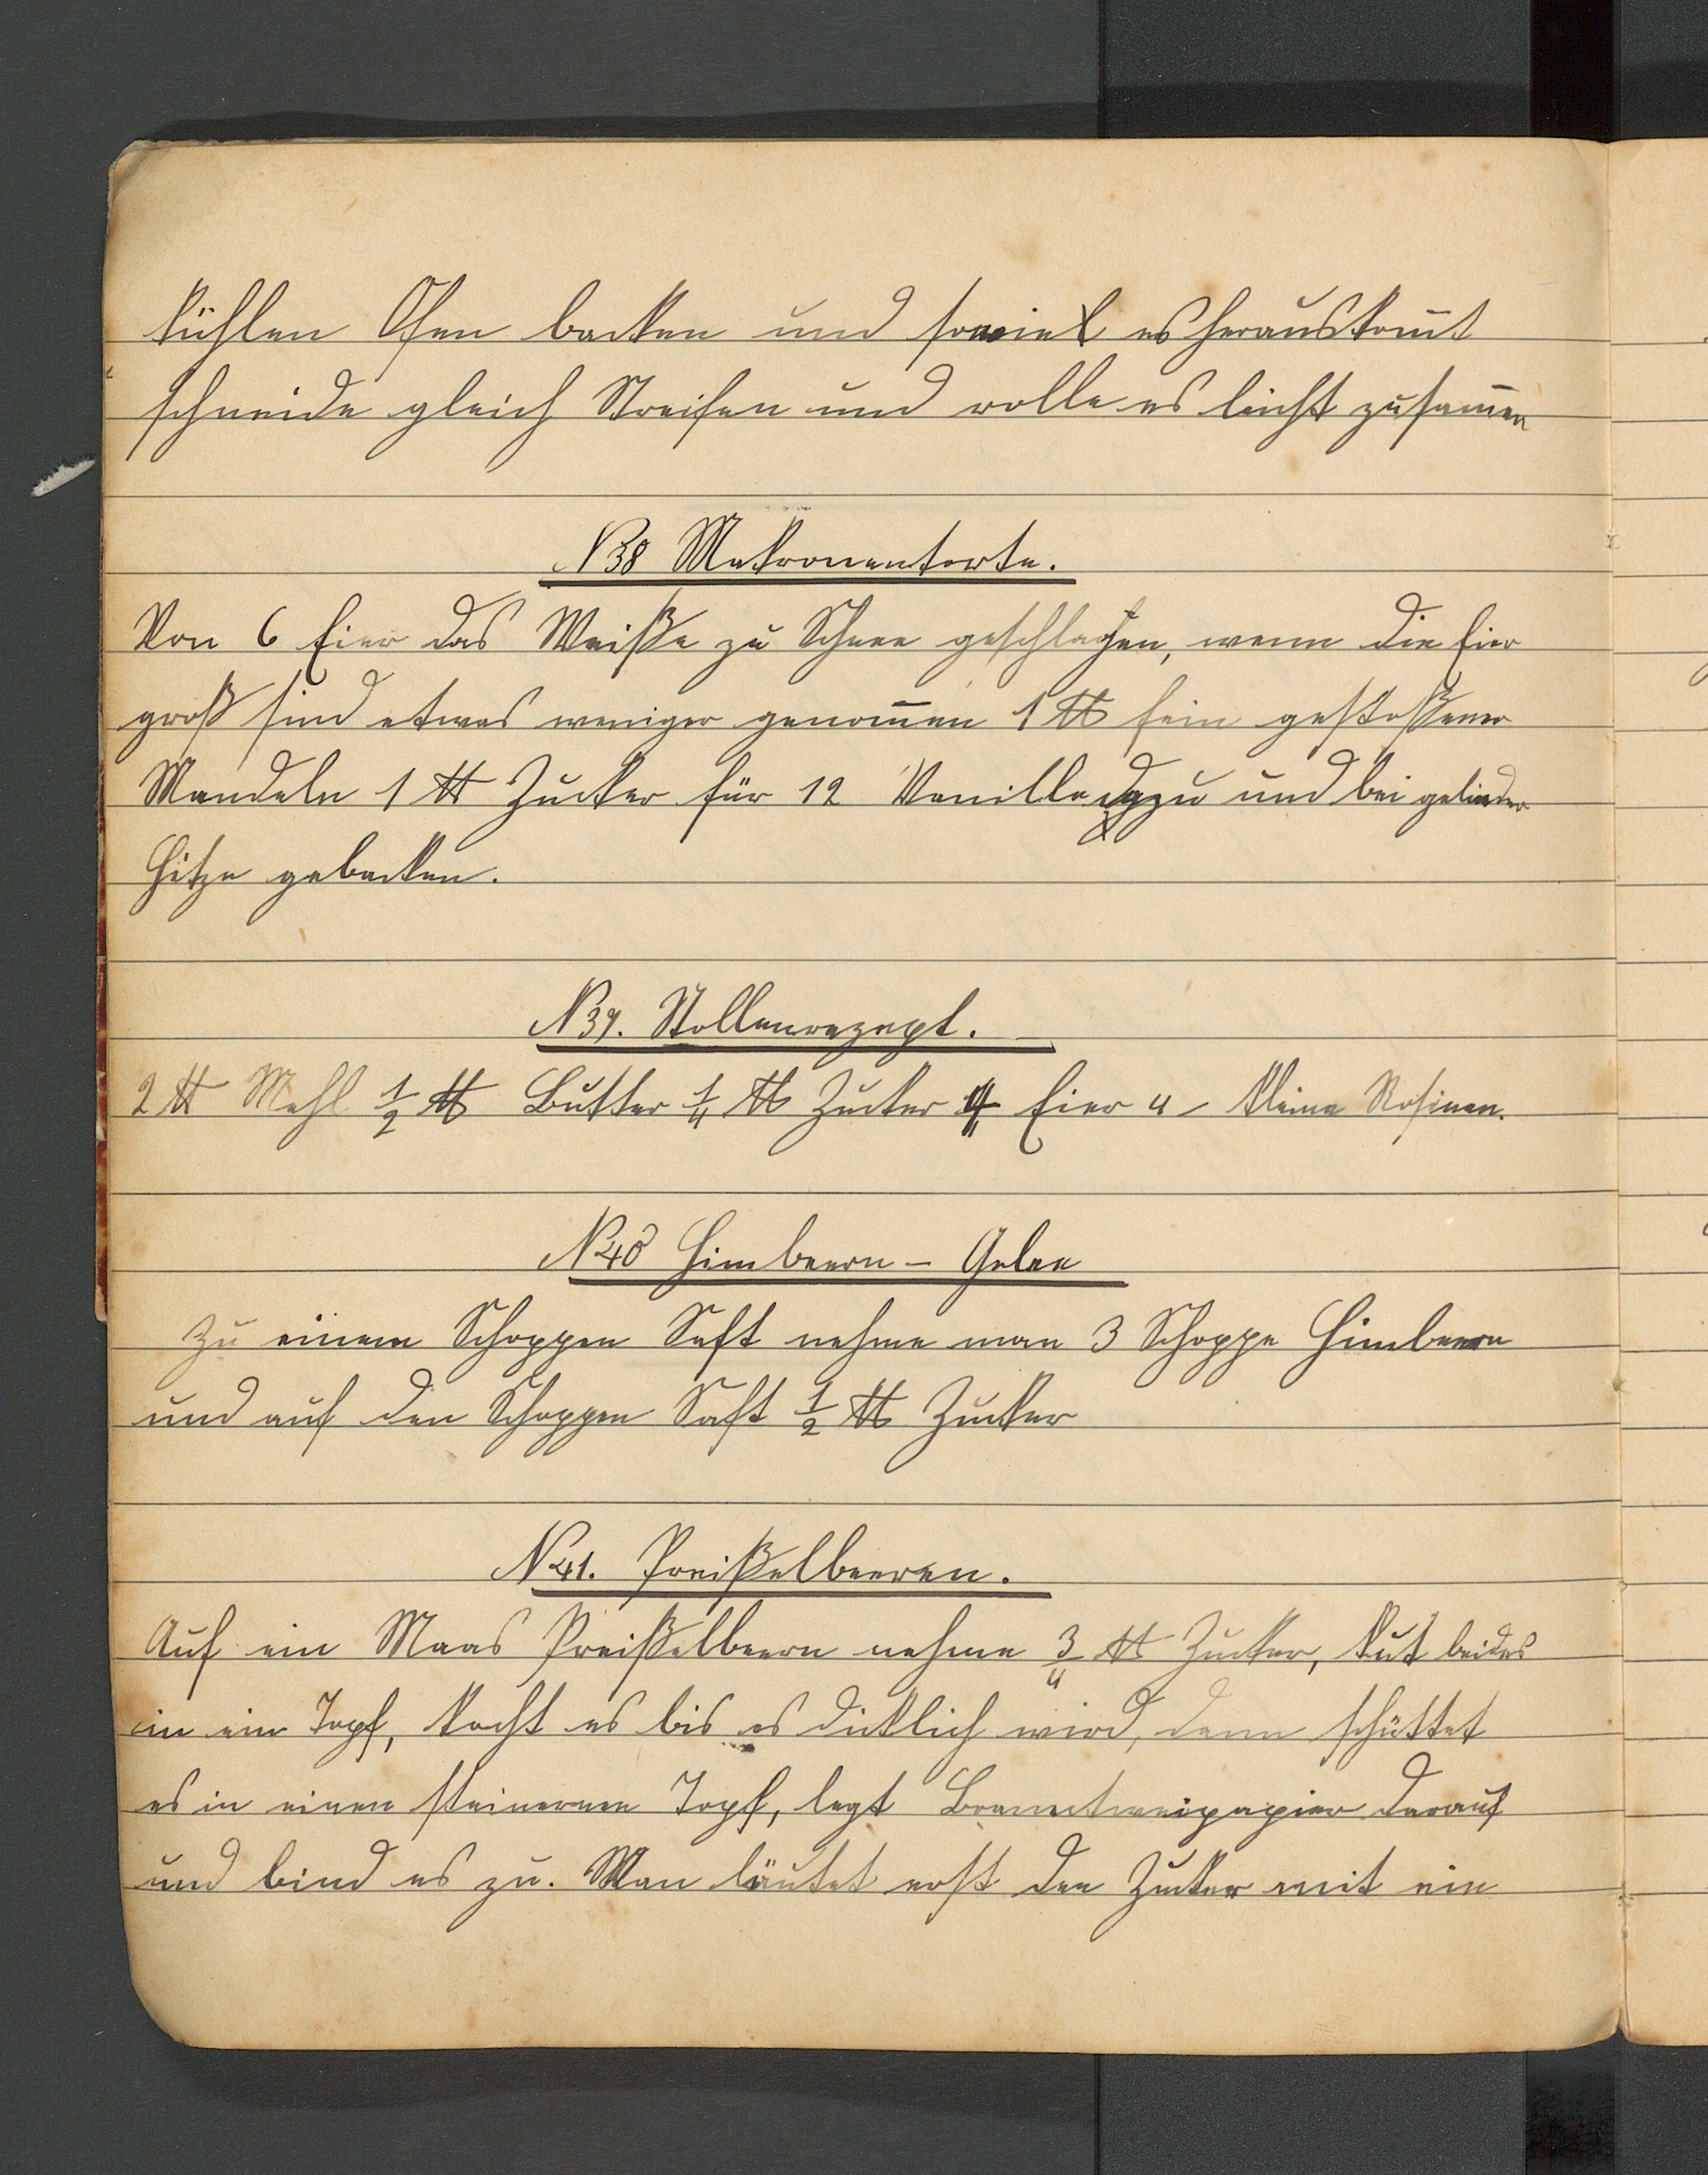 kühlen Ofen backen und sowiel es herauskom̅t
schneide gleich Streifen und rolle es leicht zusam̅en
N 38 Makronentorte.
Von 6 Eier das Weiße zu Schnee geschlagen, wenn die Eier
groß sind etwas weniger genom̅en 1 ℔ fein gestoßener
Mandeln 1 ℔ Zucker für 12 Vanille dazu und bei gelinder
Hitze gebacken.
N 39. Stollenrezept.
2 ℔ Mehl 1/2 ℔ Butter 1/4 ℔ Zucker 4 Eier u kleine Rosinen.
N 40 Himbeern - Gelee
Zu einem Schoppen Saft nehme man 3 Schoppe Himbeern
und auf den Schoppen Saft 1/2 ℔ Zucker
N 41. Preißelbeeren.
Auf ein Maas Preißelbeern nehme 3/4 ℔ Zucker, tut beides
in ein Topf, kocht es bis es dicklich wird, dann schüttet
es in einen steinernen Topf, legt Branntweipapier darauf
und bind es zu. Man läutet erst den Zucker mit ein